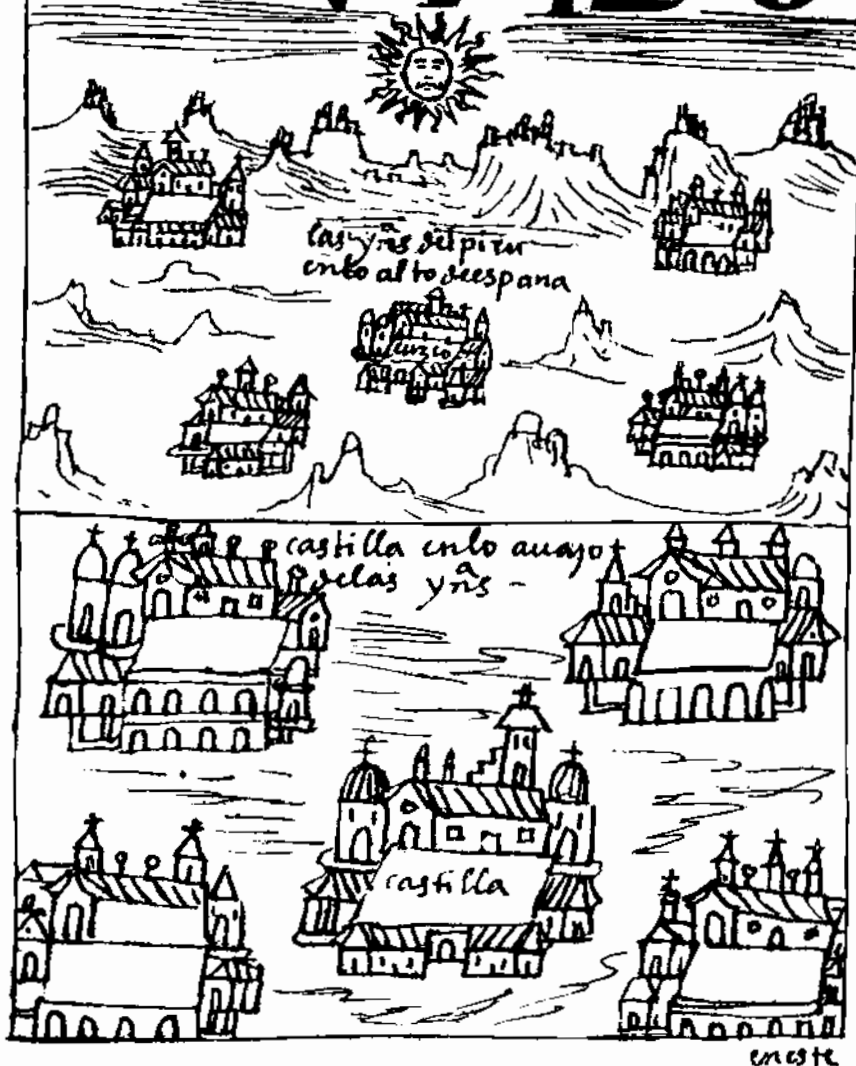 las yªns del piru
enlo alto deespana
cuzco
castilla enlo auajo
delas yªns -
castilla
eneste